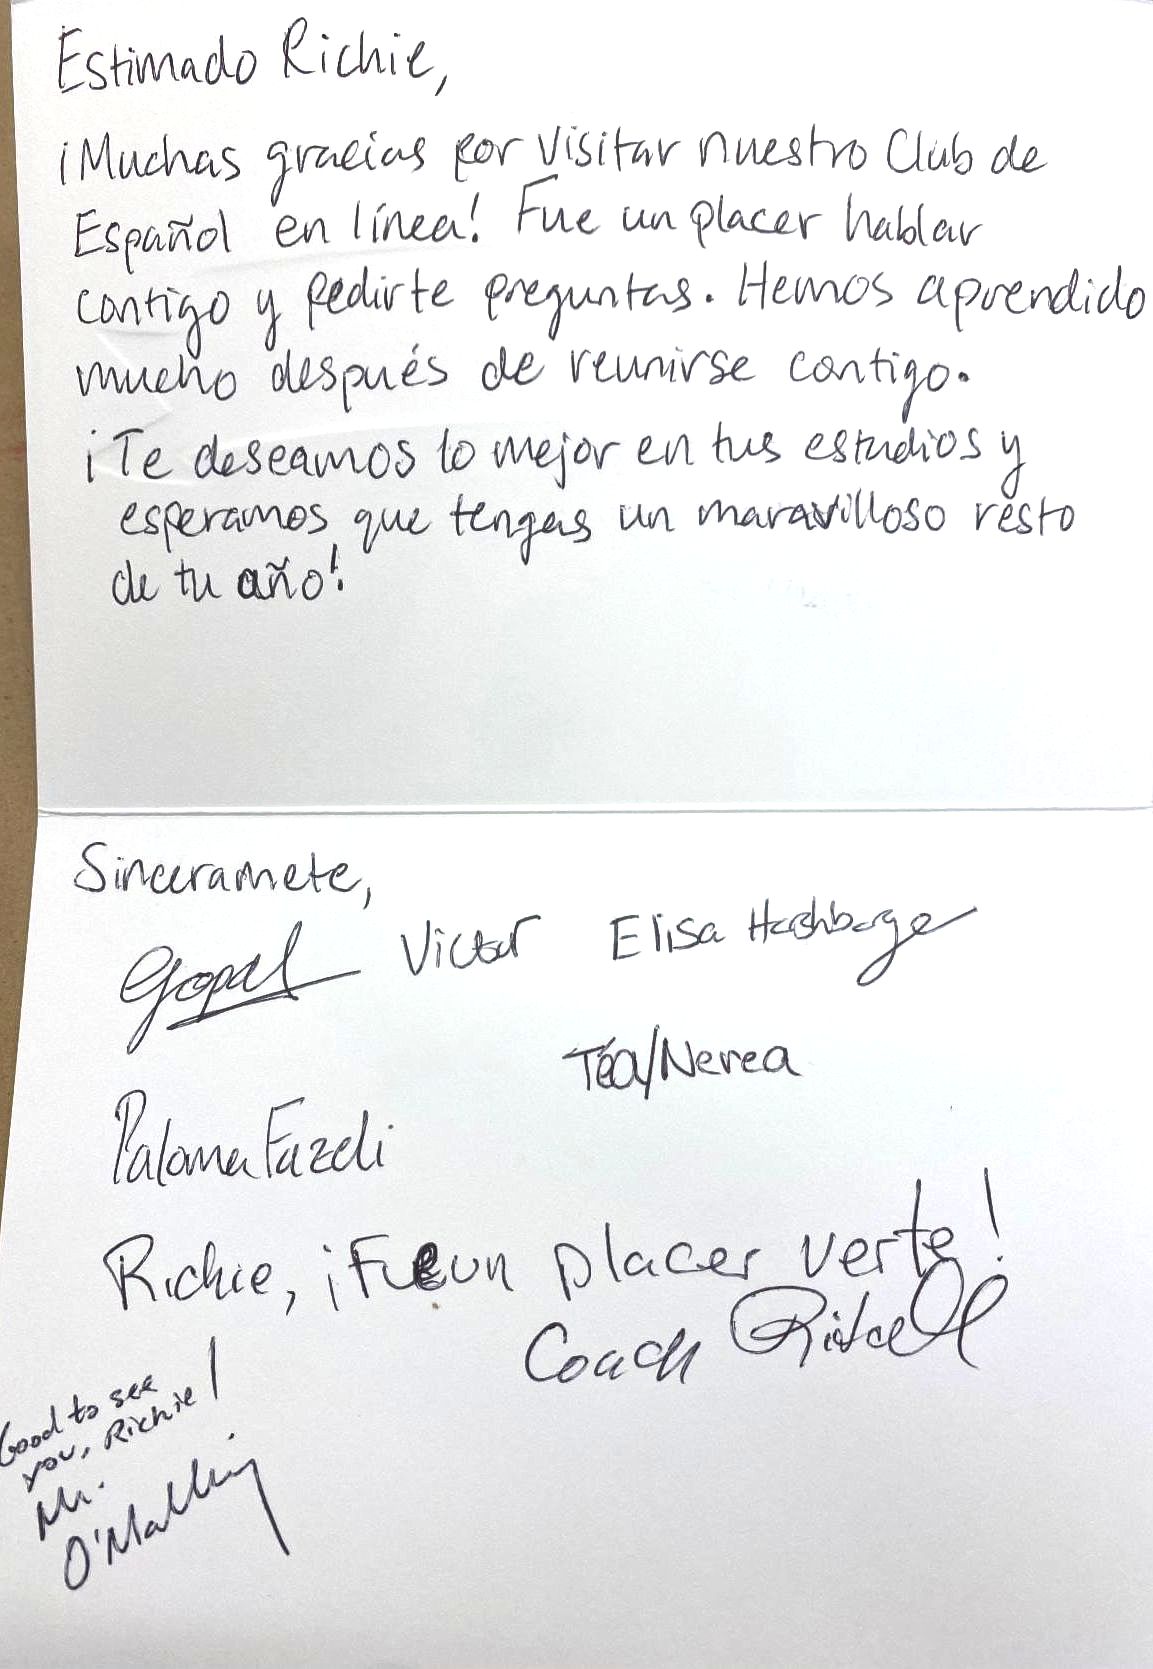 Estimado Richie,
¡Muchas gracias por visitar nuestro Club de
Español en línea! Fue un placer hablar
contigo y pedirte preguntas. Hemos aprendido
mucho después de reunirse contigo.
¡Te deseamos lo mejor en tus estudios y
esperamos que tengas un maravilloso resto
de tu año!
Sinceramete,
Gopal Victor Elisa
Téa/Nerea
Paloma Fazeli
Richie, ¡Fue un placer verte!
Coach
Good to see
you, Richie!
Mr.